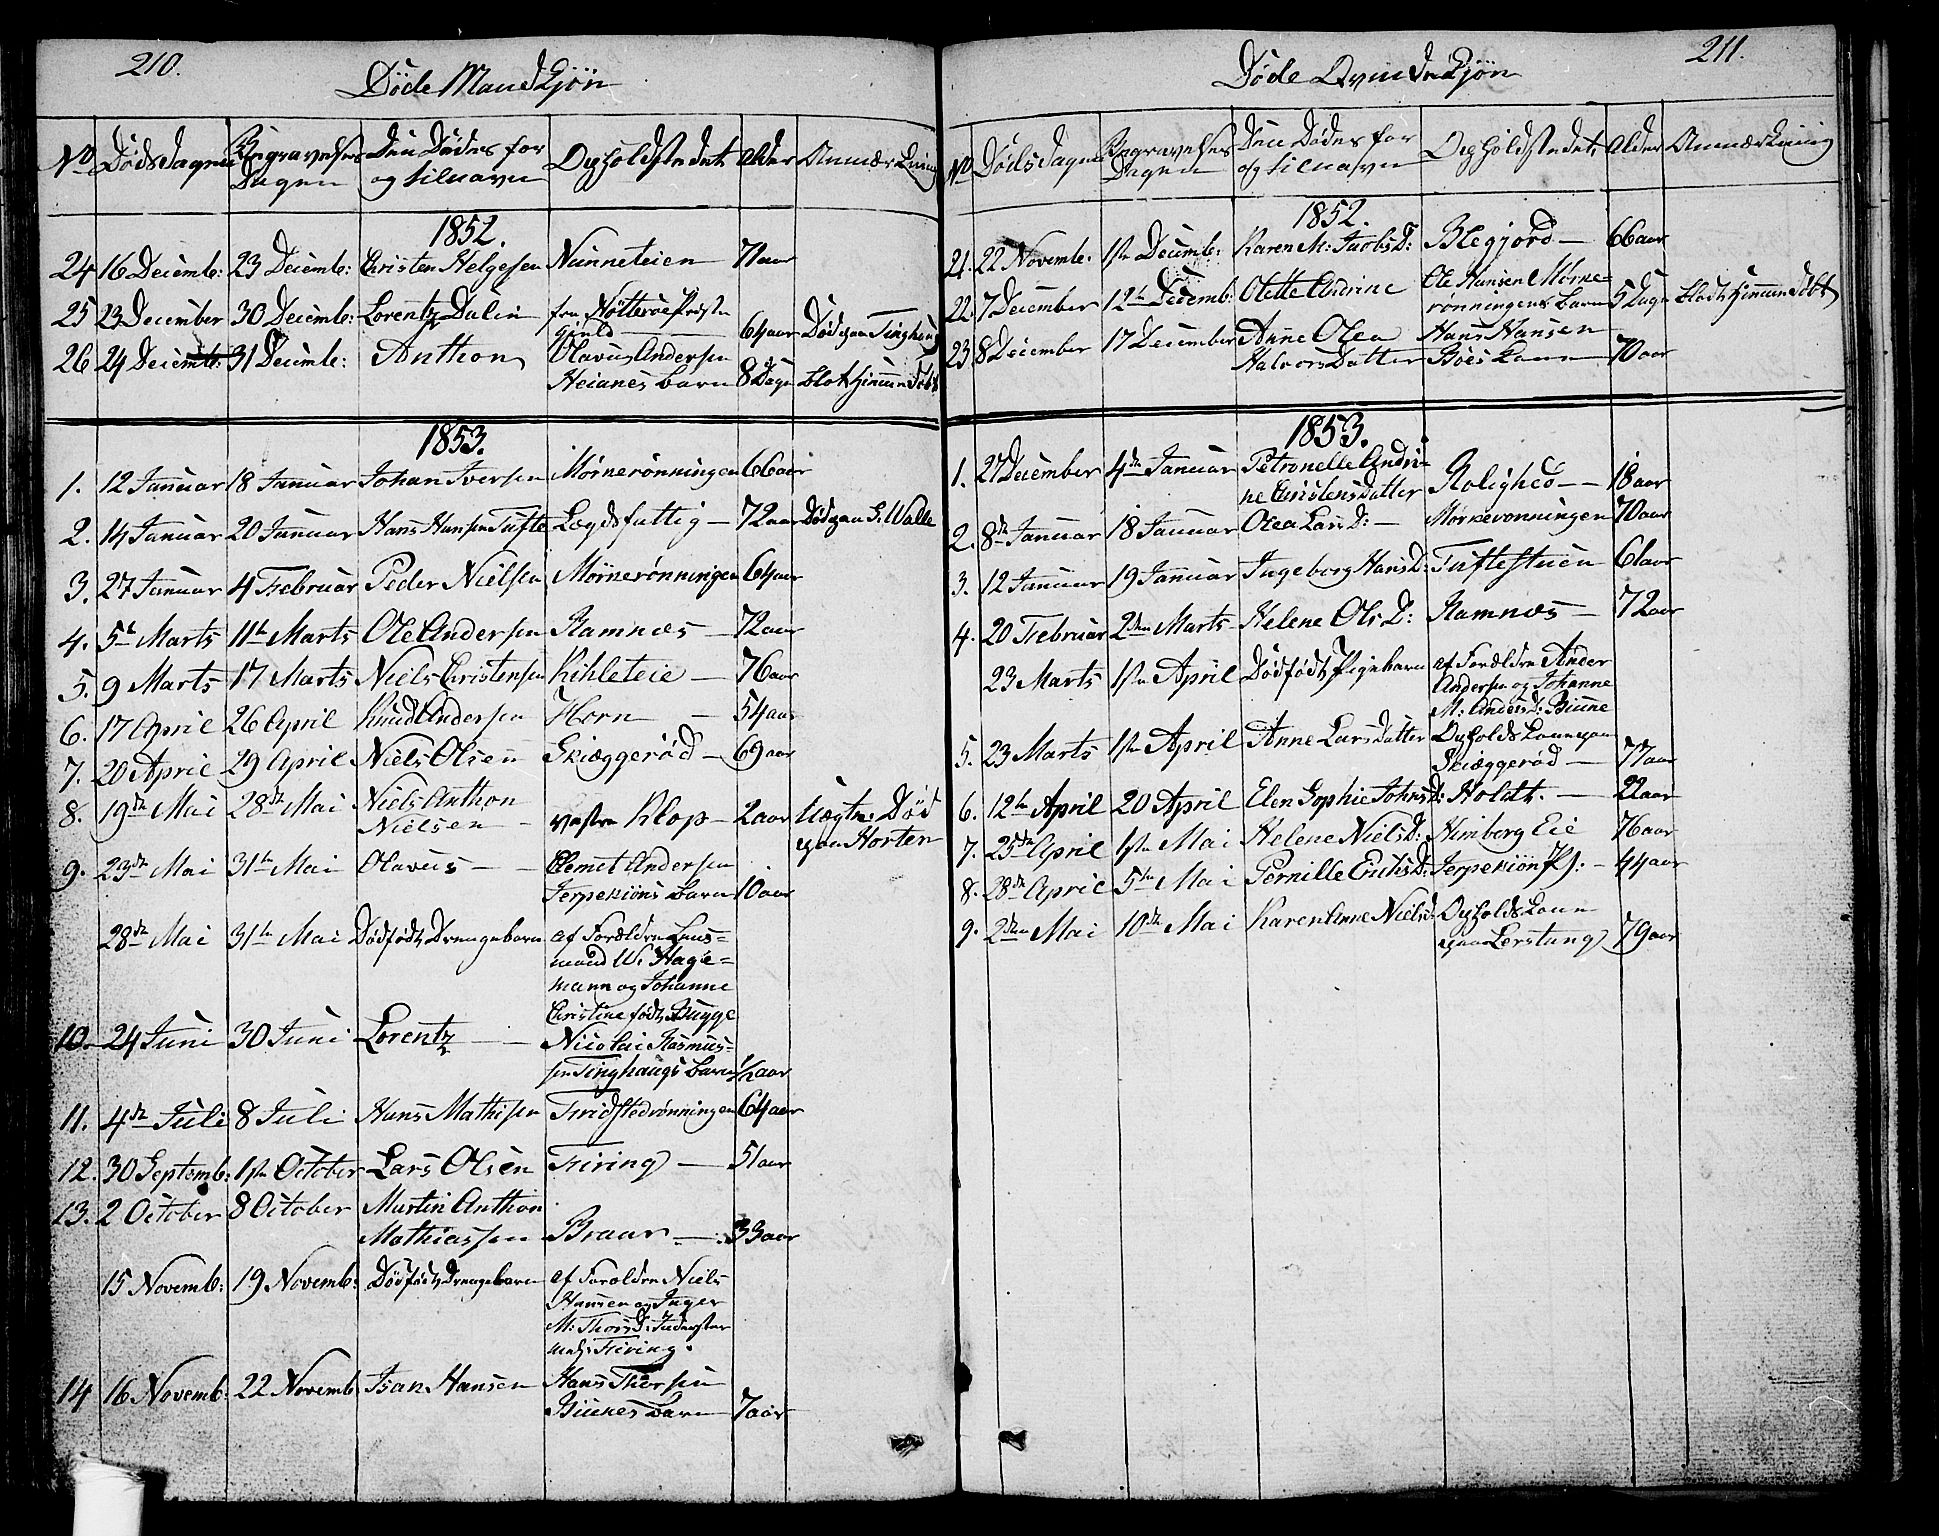 210.
Døde Mandkjøn
No Dødsdagen Begravelses Dagen Den Dødes for og tilnavn Opholdstedet Alder Anmærkning
1852.
24 16 Decemb: 23 Decemb: Christen Helgesen Nunneteien 71 aar
25 23 December 30 Decemb: Lorentz Dalin fra Nøtterøe Præste
gield 64 aar Død paa Tinghoug
26 24 Decemb: 31 Decemb: Anthon Olavus Andersen
Heianes Barn 8 Dage blot hjemmedøbt
1853.
1. 12 Januar 18 Januar Johan Iversen Mørnerønningen 66 aar
2. 14 Januar 20 Januar Hans Hansen Tufte Lægdsfattig 72 aar Død paa G. Walle
3. 27 Januar 4 Februar Peder Nielsen Mørnerønningen 64 aar
4. 5te Marts 11te Marts Ole Andersen Ramnæs 72 aar
5. 9 Marts 17 Marts Niels Christensen Kihleteie 76 aar
6. 17 April 26 April Knud Andersen Horn 54 aar
7. 20 April 29 April Niels Olsen Skiæggerød 69 aar
8. 19de Mai 28de Mai Niels Anthon
Nielsen vestre Klop 2 aar Uægte: Død
paa Horten
9. 23de Mai 31te Mai Olavus Clemet Andersen
Jerpekiøns Barn 10 aar
28de Mai 31te Mai Dødfødt Drengebarn af Forældre Lens=
mand W. Hage=
mann og Johanne
Christine født Bugge
10. 24 Juni 30 Juni Lorentz Nicolai Rasmus=
sen Tinghaugs Barn 1/2 aar
11. 4de Juli 8 Juli Hans Mathisen Fridstedrønningen 64 aar
12. 30 Septemb: 1ste October Lars Olsen Firing 51 aar
13. 2 October 8 October Martin Anthon
Mathiassen Braar 33 aar
15 Novemb: 19 Novemb: Dødfødt Drengebarn af Forældre Niels
Hansen og Inger
M: Thorsd: Inderster
Firing.
14 16 Novemb: 22 Novemb Isan Hansen Hans Thorsen
Biunes Barn 7 aar
211.
Døde Qvindekjøn
No Dødsdagen Begravelses Dagen Den Dødes for og tilnavn Opholdstedet Alder Anmærkning
1852.
21. 22 Novemb: 1ste Decemb: Karen M: Jacobsd: Blegjord 66 aar
22. 7 December 12te Decemb: Olette Andrine Ole Hansen Mørne=
rønningens Barn 5 Dage blot hjemmedøbt
23 8 December 17 December Anne Olea
Halvorsdatter Hans Hansen
Bøes Kone 70 aar
1853.
1. 27 December 4de Januar Petronelle Andri=
ne Christensdatter Rolighed 18 aar
2. 8de Januar 18 Januar Olea Larsd: Mørkevonningen 70 aar
3. 12 Januar 19 Januar Ingeborg Hansd: Tuftestuen 61 aar
4. 20 Februar 2den Marts Helene Olsd: Ramnæs 72 aar
23 Marts 1ste April Dødfødt Pigebarn af Forældre Ander
Andersen og Johanne
M: Andersd: Biune
5. 23 Marts 1ste April Anne Larsdatter Opholdskone paa
Skiæggerød 77 aar
6. 12te April 20 April Elen Sophie Johnsd: Holdt. 22 aar
7. 25de April 1ste Mai Helene Nielsd: Himberg Eie 76 aar
8. 28de April 5te Mai Pernille Erichsd: Jerpekiøn 44 aar
9. 2den Mai 10de Mai Karen Anne Nielsd: Opholds Kone
paa Lerstang 79 aar